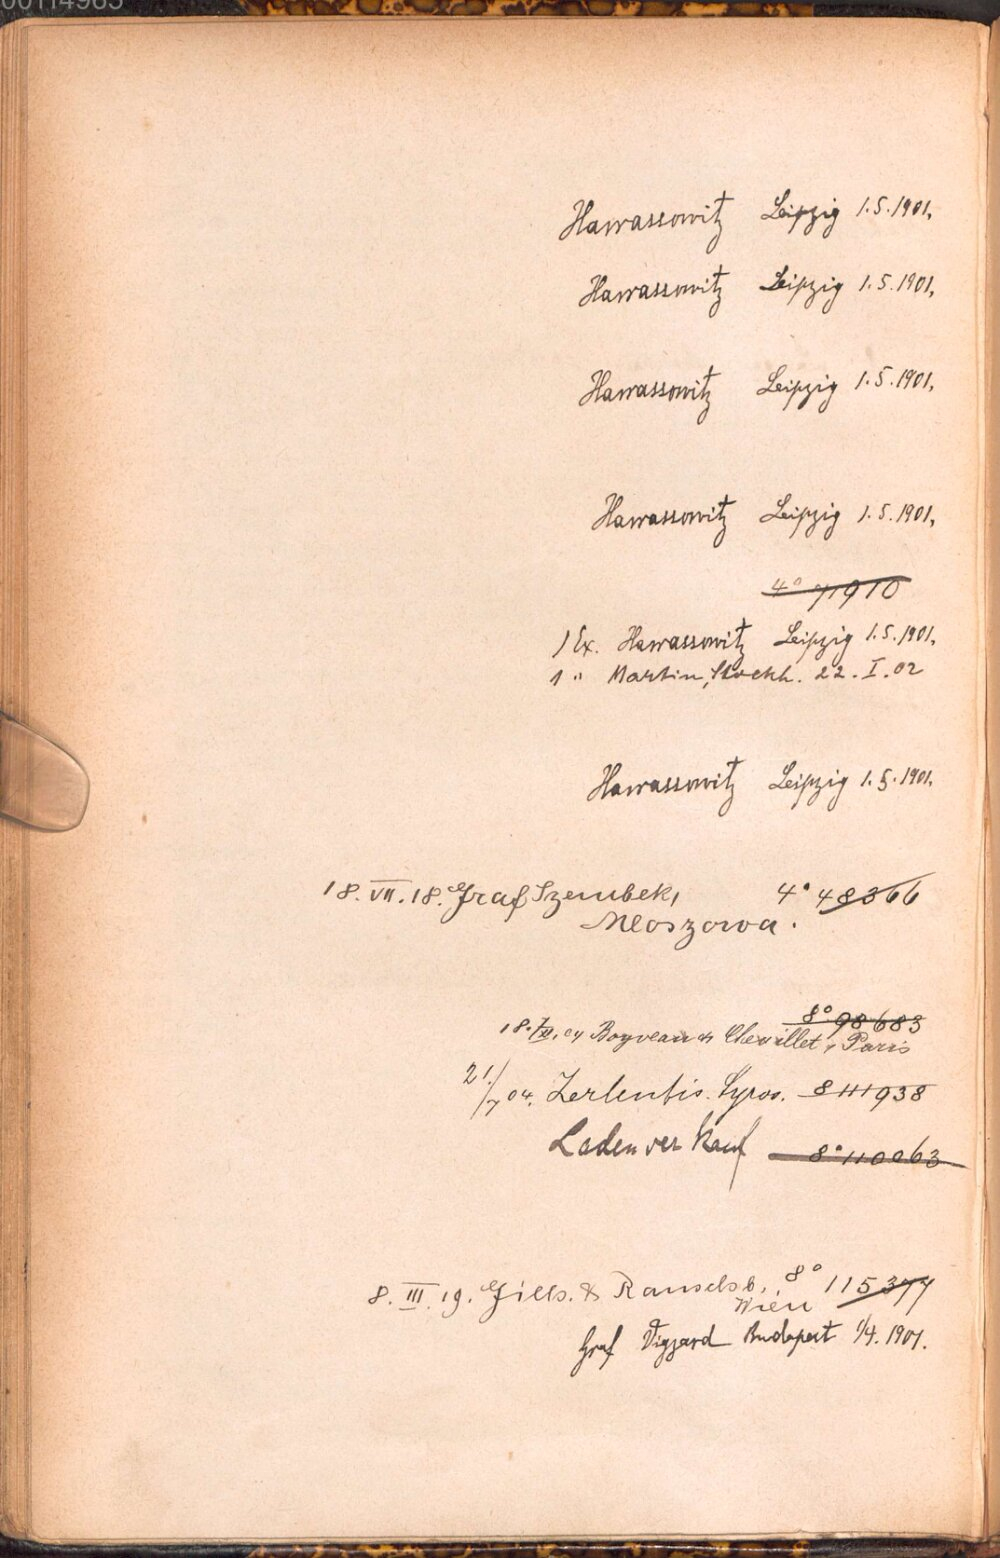 00114965
Hawassowitz Leipzig 1.5.1901,
Hawassowitz Leipzig 1.5.1901,
Hawassowitz Leipzig 1.5.1901,
Hawassowitz Leipzig 1.5.1901,
4° 71910
1 Ex. Hawassowitz Leipzig 1.5.1901,
1 " Martin, Stockh. 22.I.02
Hawassowitz Leipzig 1.5.1901,
18.VII.18. Graf Szembek, 4° 48366
Mloszowa.
8° 98683
Boyveau & Chevillet, Paris
21./7 04. Zerlentis. Syros. 8 111938
Ladenverkauf 8° 110063
8.III.19. Gilh. & Ranschb., 8° 115377
Wien
Graf Vigyard Budapest 1/4.1901.